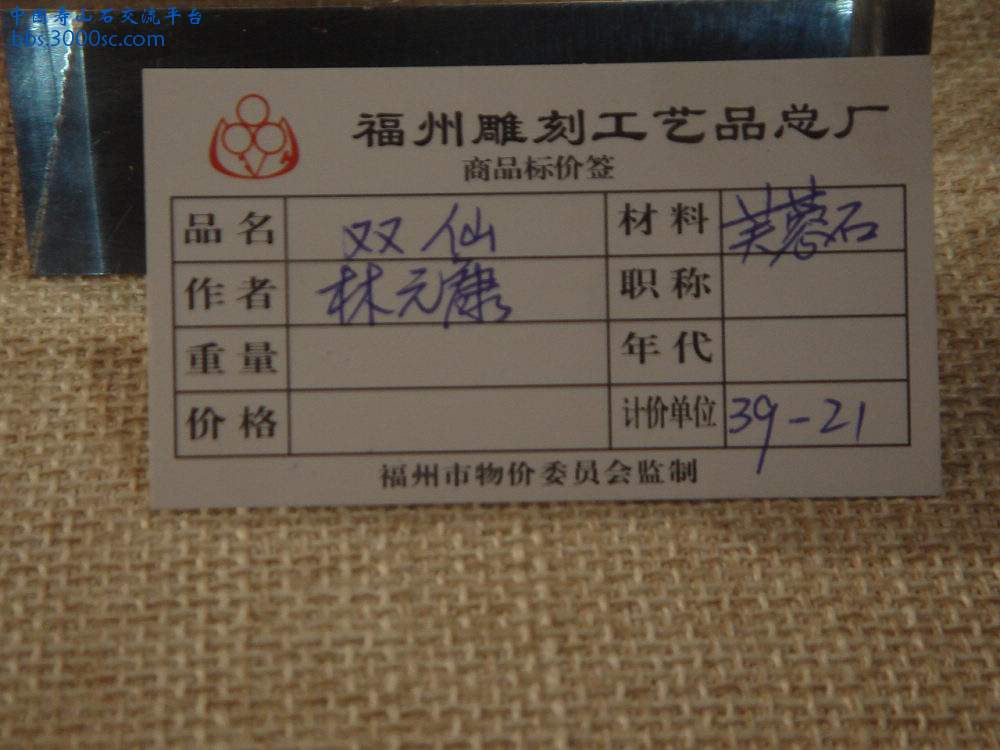 中国寿山石交流平台
bbs.3000sc.com
福州雕刻工艺品总厂
商品标价签
品名 双仙 材料 芙蓉石
作者 林元康 职称
重量 年代
价格 计价单位 39-21
福州市物价委员会监制